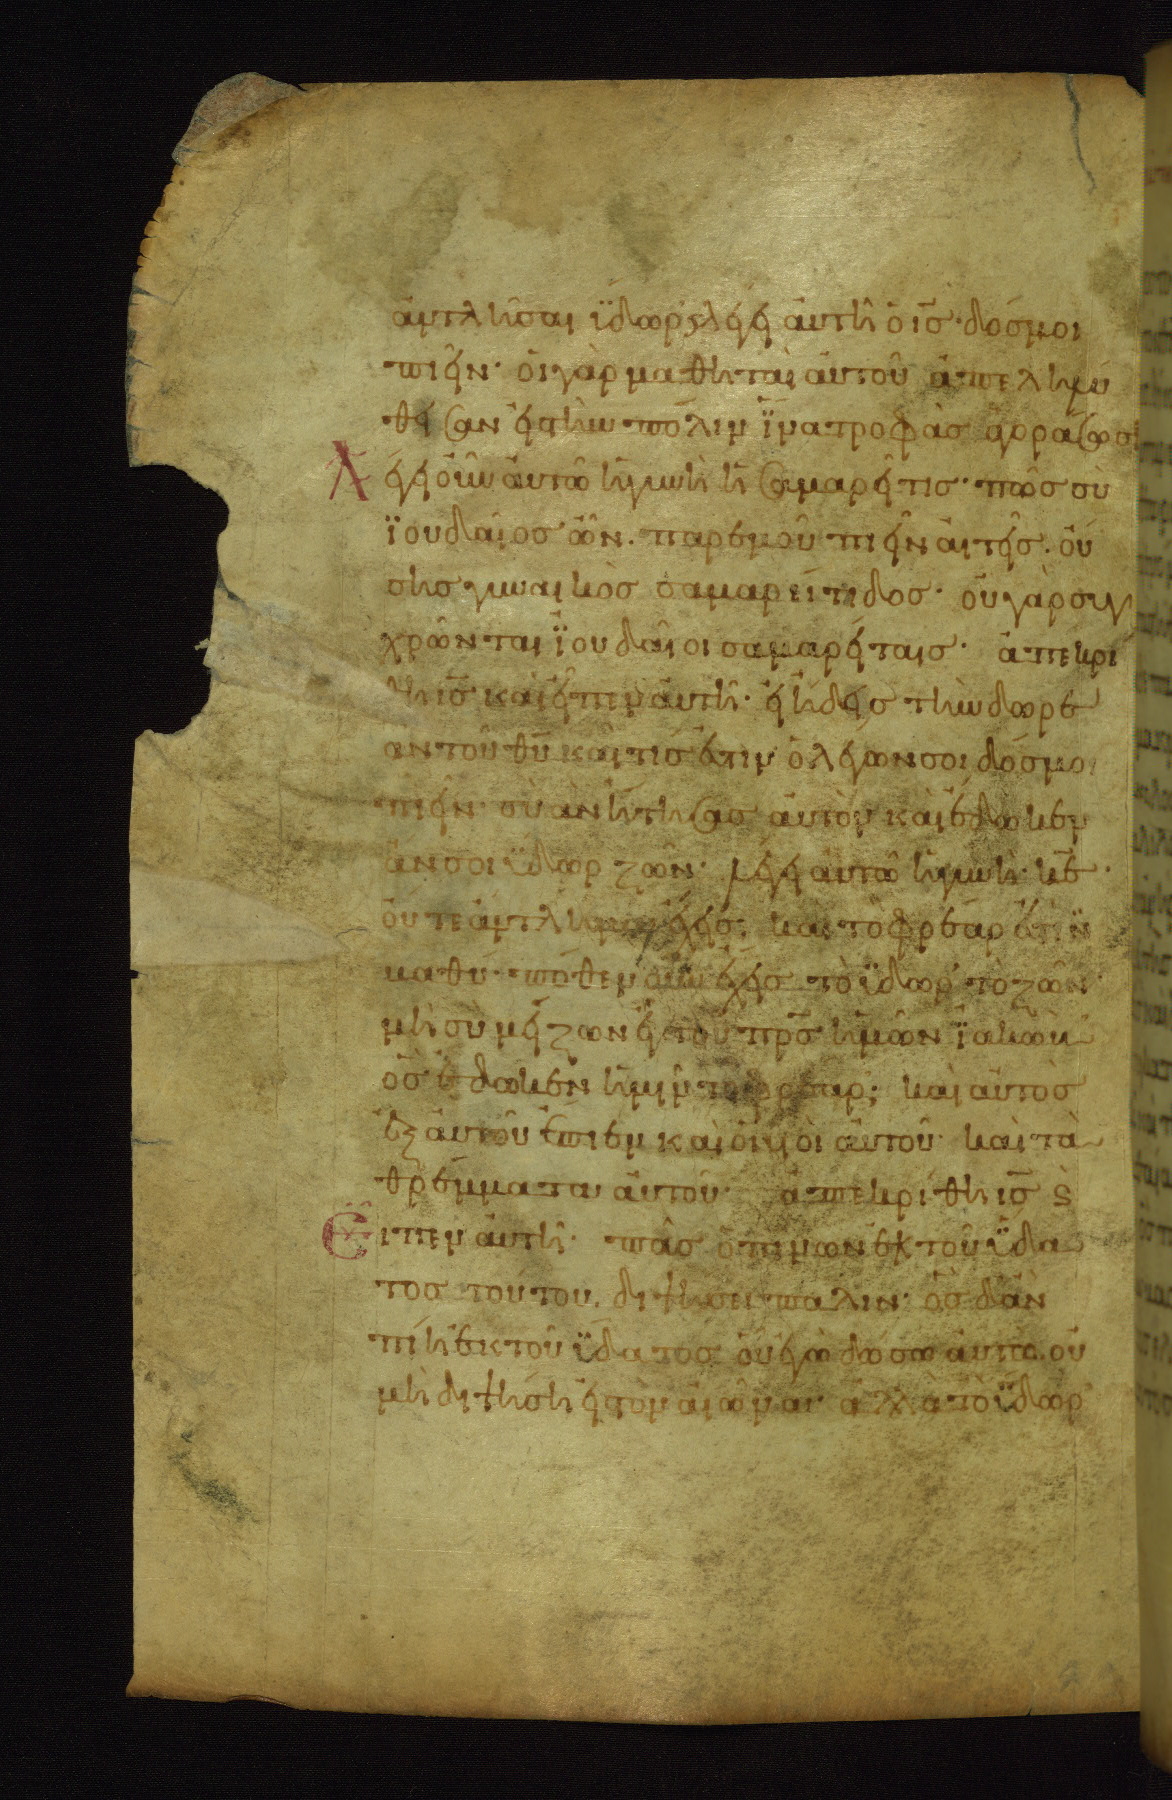 ἀντλῆσαι ὕδωρ· λέγει αὐτῆ ὁ ις̅· δόσμοι
πιεῖν· οἱ γὰρ μαθηταὶ αὐτοῦ ἀπεληλύ
θεισαν εἰς τὴν πόλιν ἵνα τροφὰς ἀγοράσωσι
Λέγει οὖν αὐτῶ ἡ γυνὴ ἡ σαμαρεῖτις· πῶς σὺ
ἰουδαῖος ὢν· παρ' ἐμοῦ πιεῖν αἰτεῖς· οὔ
σης γυναικὸς σαμαρείτιδος· οὐ γὰρ συγ
χρῶνται ἰουδαῖοι σαμαρείταις· ἀπεκρί
θη ις̅ καὶ εἶπεν αὐτῆ· εἰ ἤδεις τὴν δωρε
ὰν τοῦ θυ̅ καὶ τίς ἐστιν ὁ λέγων σοι δόσμοι
πιεῖν· σὺ ἂν ἤτησας αὐτὸν καὶ ἔδωκεν
ἄν σοι ὕδωρ ζῶν· λέγει αὐτῶ ἡ γυνή· κε̅·
οὔτε ἄντλημα ἔχεις· καὶ τὸ φρέαρ ἐστὶν
βαθύ· πόθεν οὖν ἔχεις τὸ ὕδωρ τὸ ζῶν·
μὴ σὺ μείζων εἶ τοῦ πρς̅ ἡμῶν ἰακώβ
ὃς ἔδωκεν ἡμῖν τὸ φρέαρ· καὶ αὐτὸς
ἐξ αὐτοῦ ἔπιεν καὶ οἱ υἱοὶ αὐτοῦ· καὶ τὰ
θρέμματα αὐτοῦ· ἀπεκρίθη ις̅ ϗ
Εἶπεν αὐτῆ· πᾶς ὁ πίνων ἐκ τοῦ ὕδα
τος τούτου, διψήσει πάλιν· ὃς δ' ἂν
πίη ἐκ τοῦ ὕδατος οὗ ἐγὼ δώσω αὐτῶ· οὐ
μὴ διψήση εἰς τὸν αἰῶνα· ἀλλὰ τὸ ὕδωρ